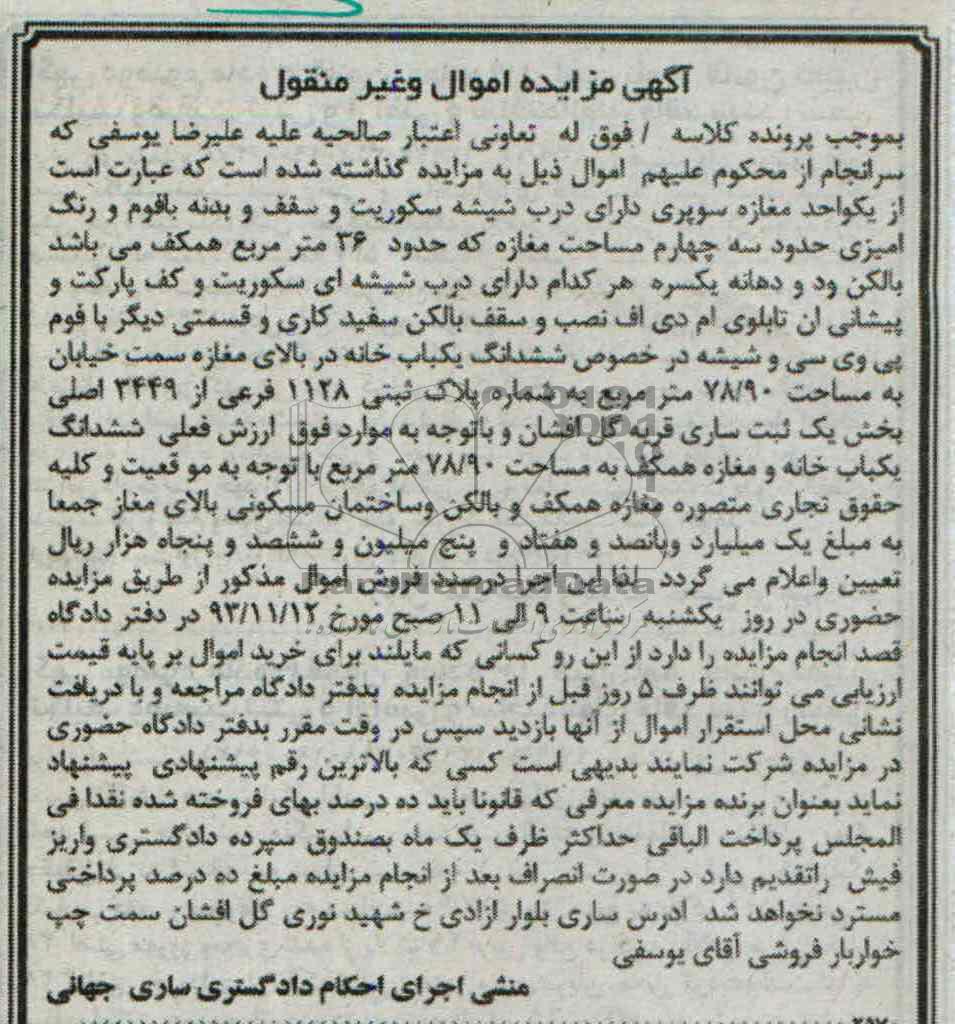 آگهی مزایده اموال وغیر منقول
بموجب پرونده کلاسه / فوق له تعاونی اعتبار صالحیه علیه علیرضا یوسفی که
سرانجام از محکوم علیهم اموال ذیل به مزایده گذاشته شده است که عبارت است
از یکواحد مغازه سوپری دارای درب شیشه سکوریت و سقف و بدنه بافوم و رنگ
امیزی حدود سه چهارم مساحت مغازه که حدود ۳۶ متر مربع همکف می باشد
بالکن ود و دهانه یکسره هر کدام دارای درب شیشه ای سکوریت و کف پارکت و
پیشانی ان تابلوی ام دی اف نصب و سقف بالکن سفید کاری و قسمتی دیگر با فوم
پی وی سی و شیشه در خصوص ششدانگ یکباب خانه در بالای مغازه سمت خیابان
به مساحت ۷۸/۹۰ متر مربع به شماره پلاک ثبتی ۱۱۲۸ فرعی از ۳۴۴۹ اصلی
بخش یک ثبت ساری قریه گل افشان و باتوجه به موارد فوق ارزش فعلی ششدانگ
یکباب خانه و مغازه همکف به مساحت ۷۸/۹۰ متر مربع با توجه به مو قعیت و کلیه
حقوق تجاری متصوره مغازه همکف و بالکن وساختمان مسکونی بالای مغاز جمعا
به مبلغ یک میلیارد وپانصد و هفتاد و پنج میلیون و ششصد و پنجاه هزار ریال
تعیین واعلام می گردد لذا این اجرا درصدد فروش اموال مذکور از طریق مزایده
حضوری در روز یکشنبه ساعت ۹ الی ۱۱ صبح مورخ ۹۳/۱۱/۱۲ در دفتر دادگاه
قصد انجام مزایده را دارد از این رو کسانی که مایلند برای خرید اموال بر پایه قیمت
ارزیابی می توانند ظرف ۵ روز قبل از انجام مزایده بدفتر دادگاه مراجعه و با دریافت
نشانی محل استقرار اموال از آنها بازدید سپس در وقت مقرر بدفتر دادگاه حضوری
در مزایده شرکت نمایند بدیهی است کسی که بالاترین رقم پیشنهادی پیشنهاد
نماید بعنوان برنده مزایده معرفی که قانونا باید ده درصد بهای فروخته شده نقدا فی
المجلس پرداخت الباقی حداکثر ظرف یک ماه بصندوق سپرده دادگستری واریز
فیش راتقدیم دارد در صورت انصراف بعد از انجام مزایده مبلغ ده درصد پرداختی
مسترد نخواهد شد ادرس ساری بلوار ازادی خ شهید نوری گل افشان سمت چپ
خواربار فروشی آقای یوسفی
منشی اجرای احکام دادگستری ساری جهانی
ParsNamadData